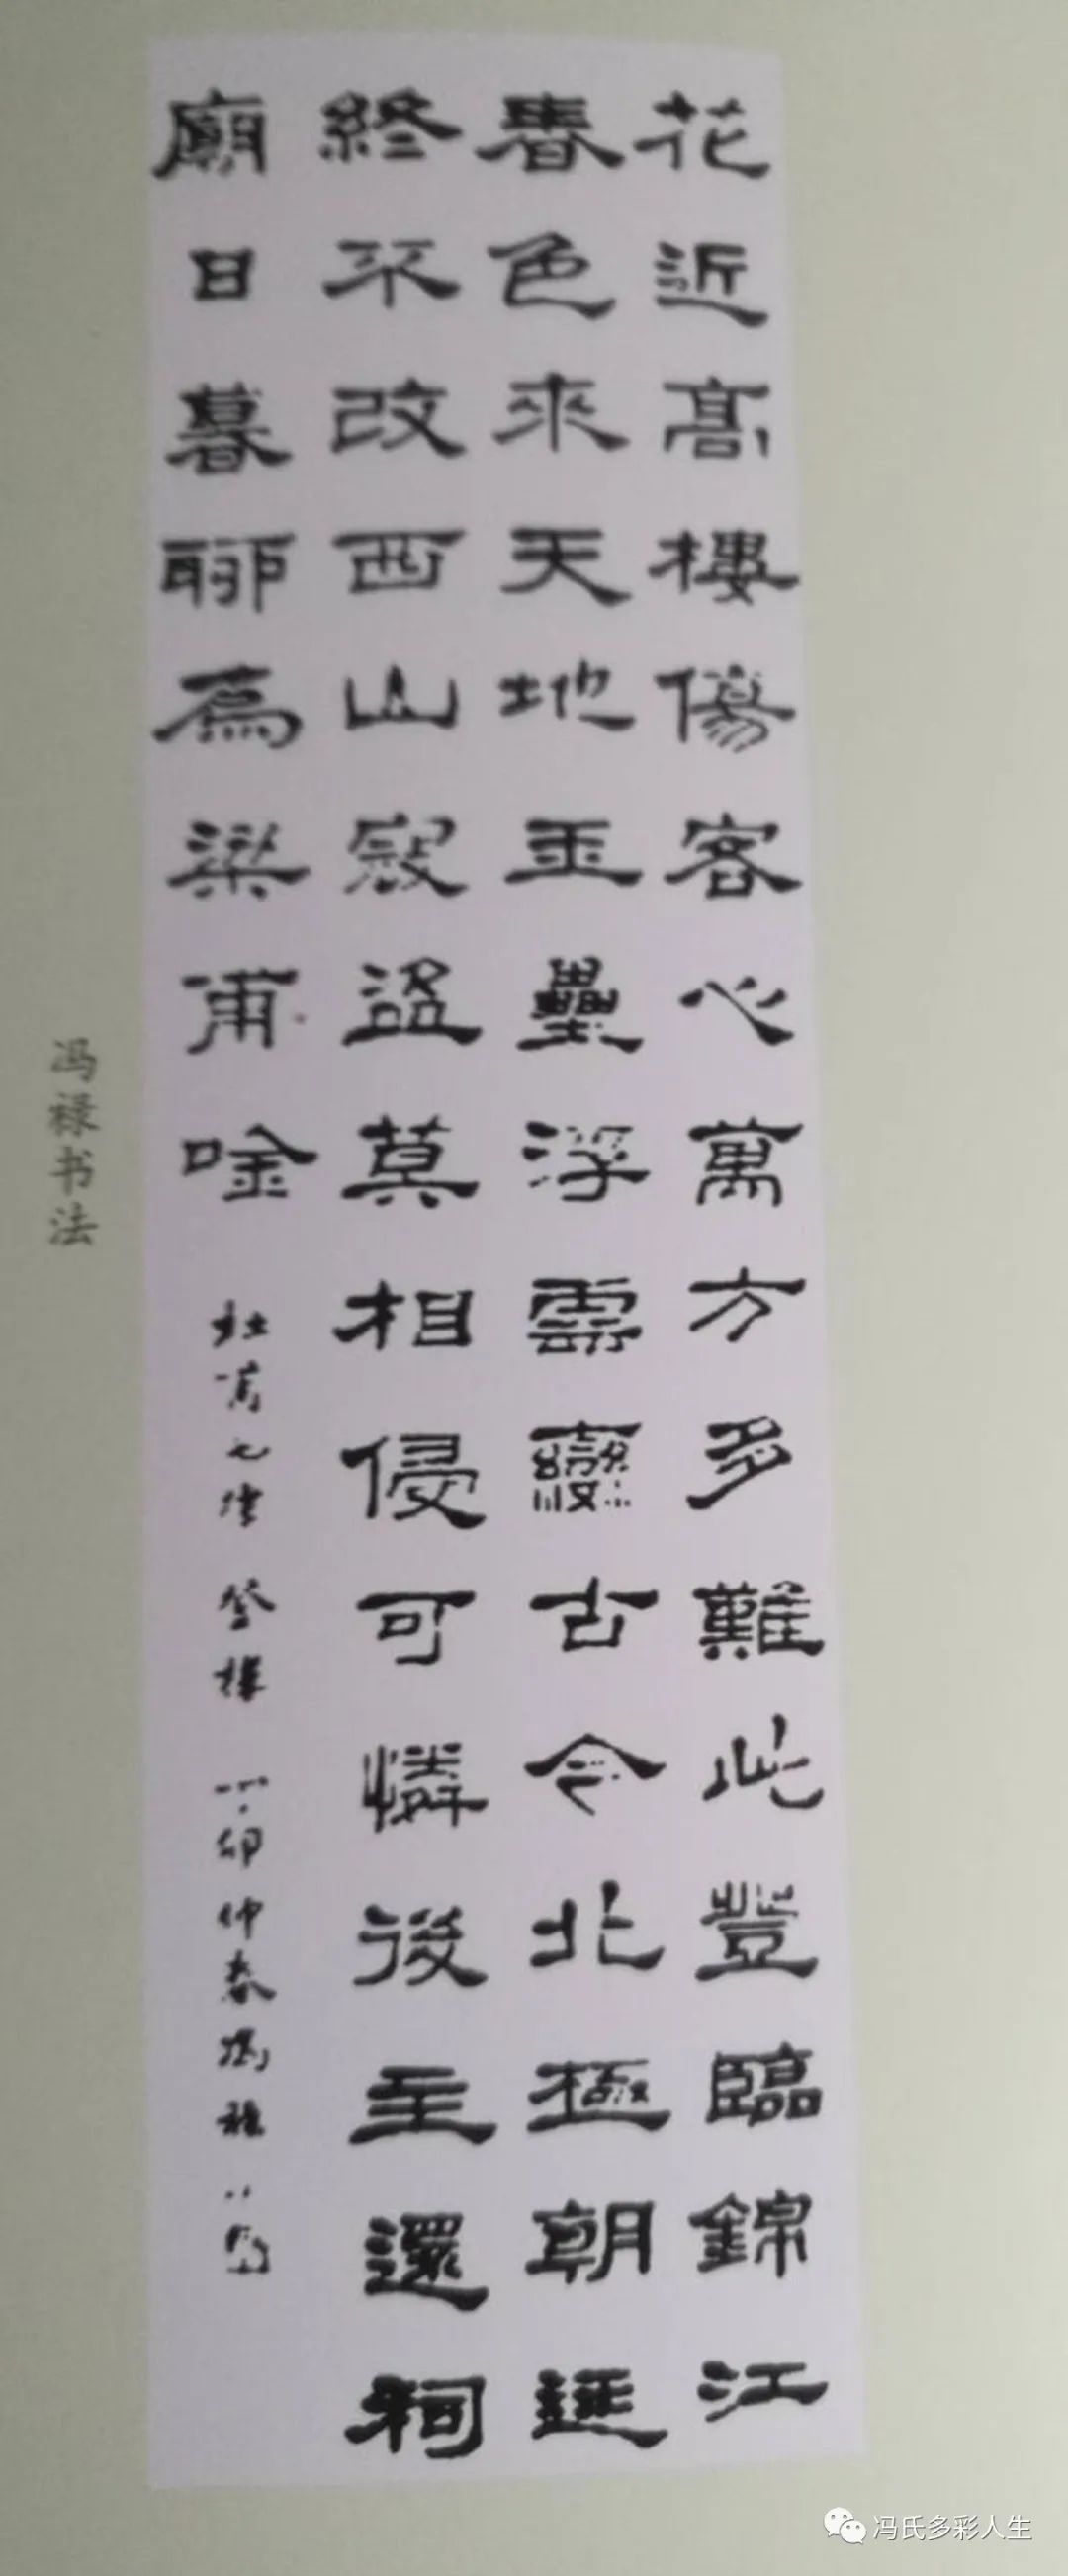 花近高樓傷客心萬方多難此登臨錦江
春色來天地玉壘浮雲變古今北極朝廷
終不改西山寇盜莫相侵可憐後主還祠
廟日暮聊為梁甫唫
杜甫七律 登樓 丁卯仲春馮祿
冯禄书法
冯氏多彩人生